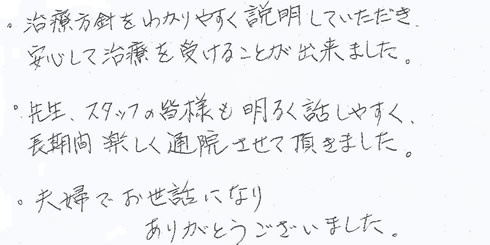 。治療方針をわかりやすく説明していただき、
安心して治療を受けることが出来ました。
。先生、スタッフの皆様も明るく話しやすく、
長期間楽しく通院させて頂きました。
。夫婦でお世話になり
ありがとうございました。